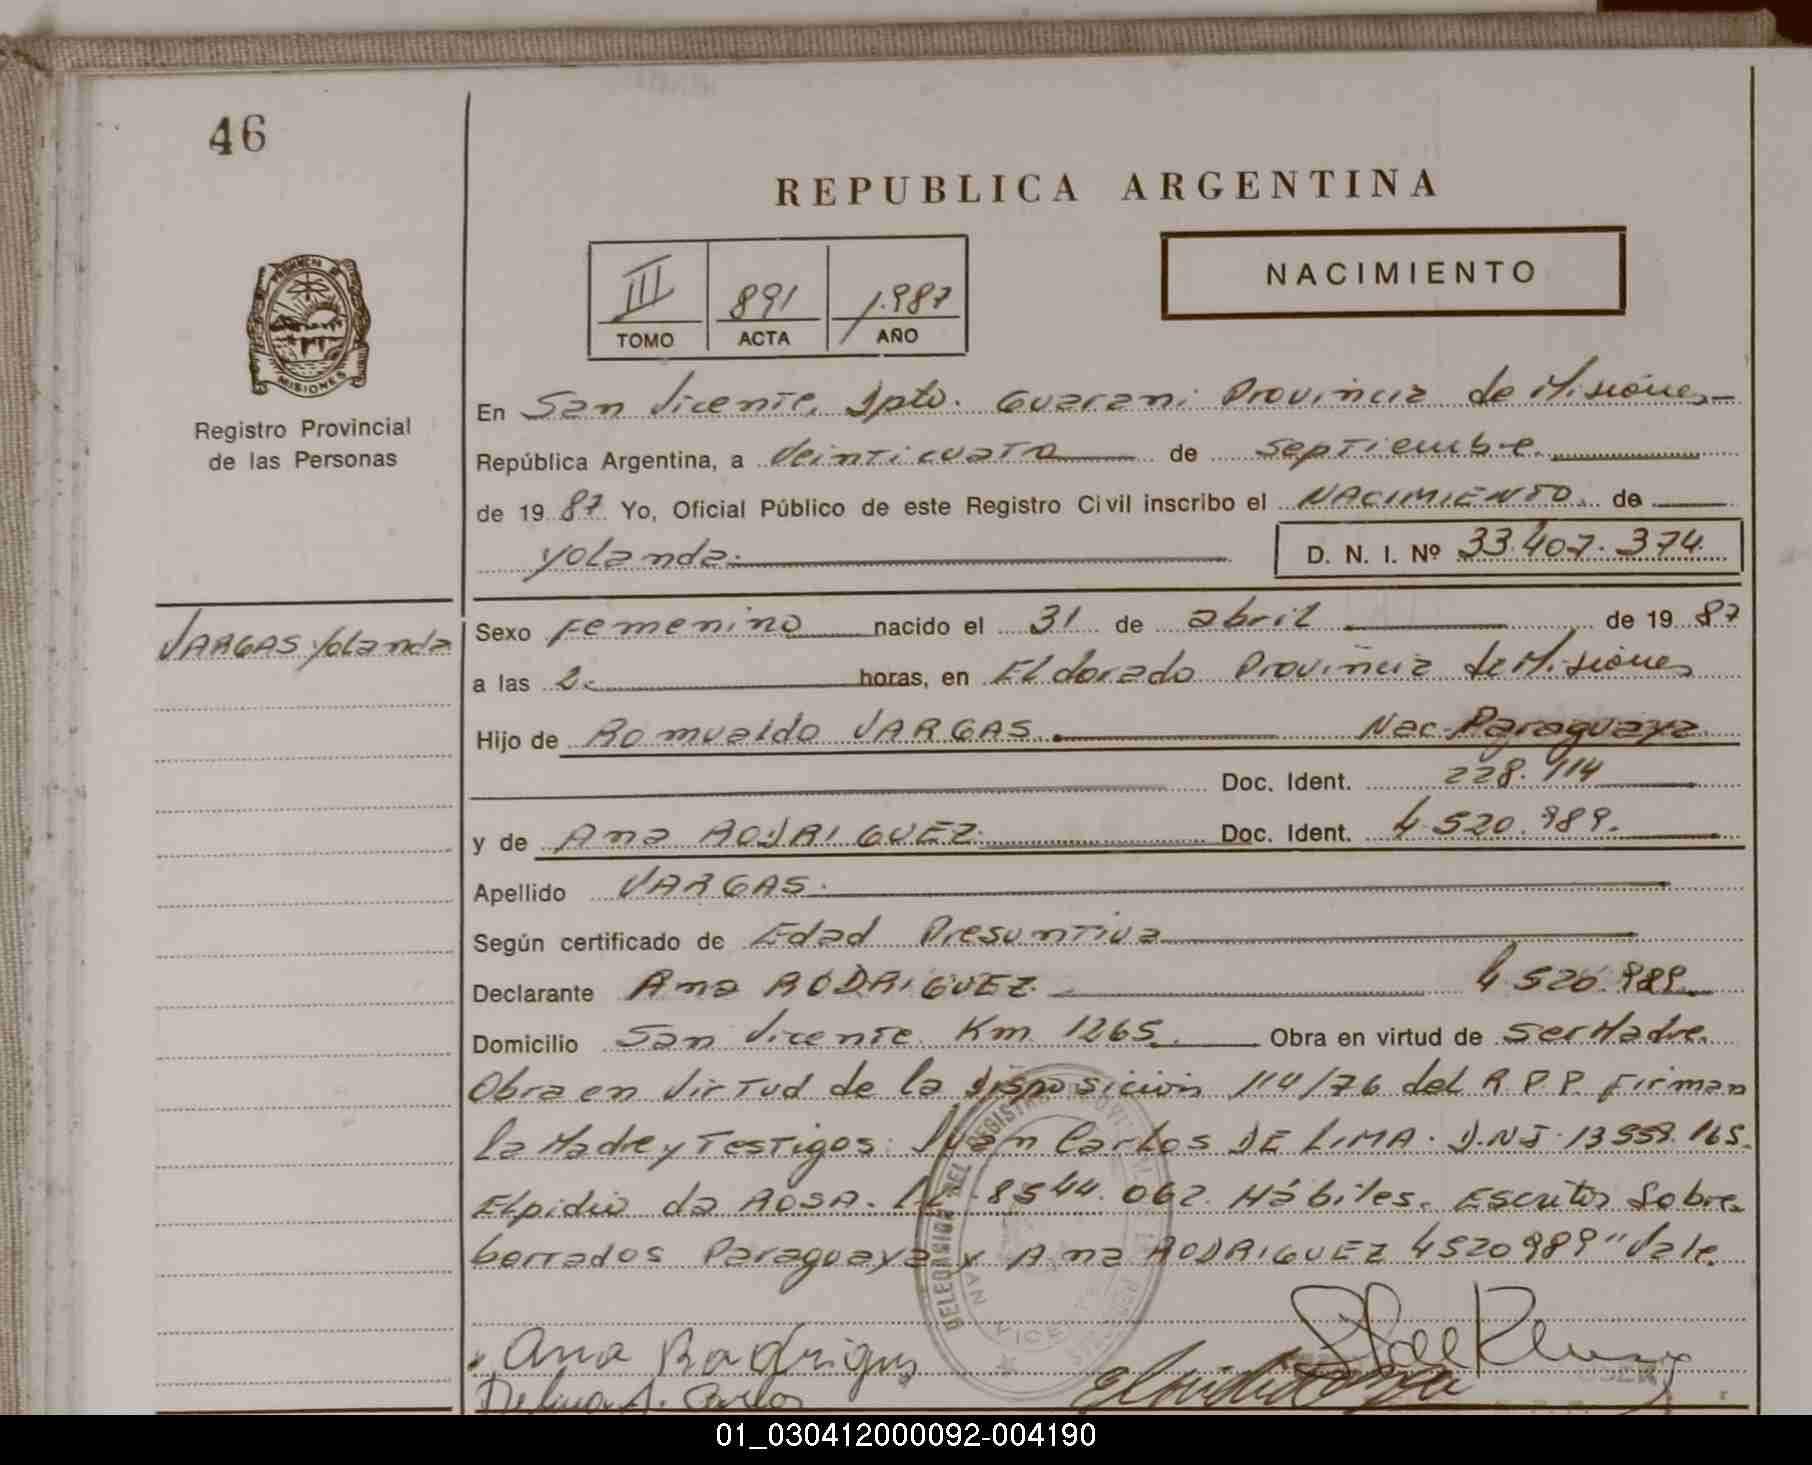 46
REPUBLICA ARGENTINA
III 891 1.987
TOMO ACTA AÑO
NACIMIENTO
PROVINCIA DE
MISIONES
Registro Provincial
de las Personas
En San Vicente, Dpto. Guarani Provincia de Misiones
República Argentina, a Veinticuatro de septiembre.
de 1987. Yo, Oficial Público de este Registro Civil inscribo el NACIMIENTO. de
Yolanda. D. N. I. Nº 33.407.374.
VARGAS Yolanda
Sexo Femenino nacido el 31 de abril de 1987
a las 2. horas, en Eldorado Provincia de Misiones
Hijo de Romualdo VARGAS. Nac. Paraguaya.
Doc. Ident. 228.114
y de Ana RODRIGUEZ. Doc. Ident. 4.520.989.
Apellido VARGAS.
Según certificado de Edad Presuntiva
Declarante Ana RODRIGUEZ. 4.520.989.
Domicilio San Vicente Km 1265. Obra en virtud de ser Madre.
Obra en virtud de la Disposicion 114/76 del R.P.P. firman
la Madre y Testigos: Juan Carlos DE LIMA. D.N.I. 13.559.165.
Elpidio da ROSA. 8544.062. Hábiles. Escritos Sobre
borrados Paraguaya y Ana RODRIGUEZ 4520989" Vale.
DELEGACION DEL REGISTRO
SAN VICENTE
Ana Rodrigus
Delima J. Carlos
01_030412000092-004190